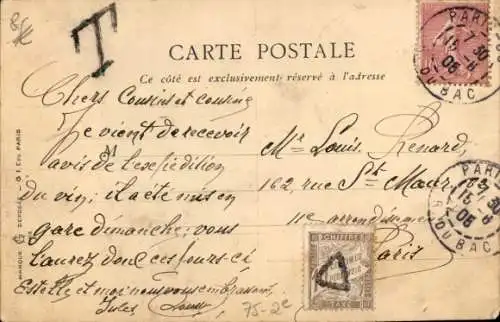 T
CARTE POSTALE
Ce côté est exclusivement réservé à l'adresse
Chers Cousins et cousine
Je vient de recevoir
avis de l'expédition
du vin; il a été mis en
gare dimanche; vous
l'aurez donc ces jours-ci
Estelle et moi nous vous embrassons
Jules
M
Mr Louis Renard,
162, rue St Maur,
11e arrondissement
Paris
PARIS
7 30
15 - 8
06
R. DU BAC
PARIS
7 30
15 - 8
06
R. DU BAC
CHIFFRE
TAXE
T
75-2c
MARQUE DÉPOSÉE
PARIS